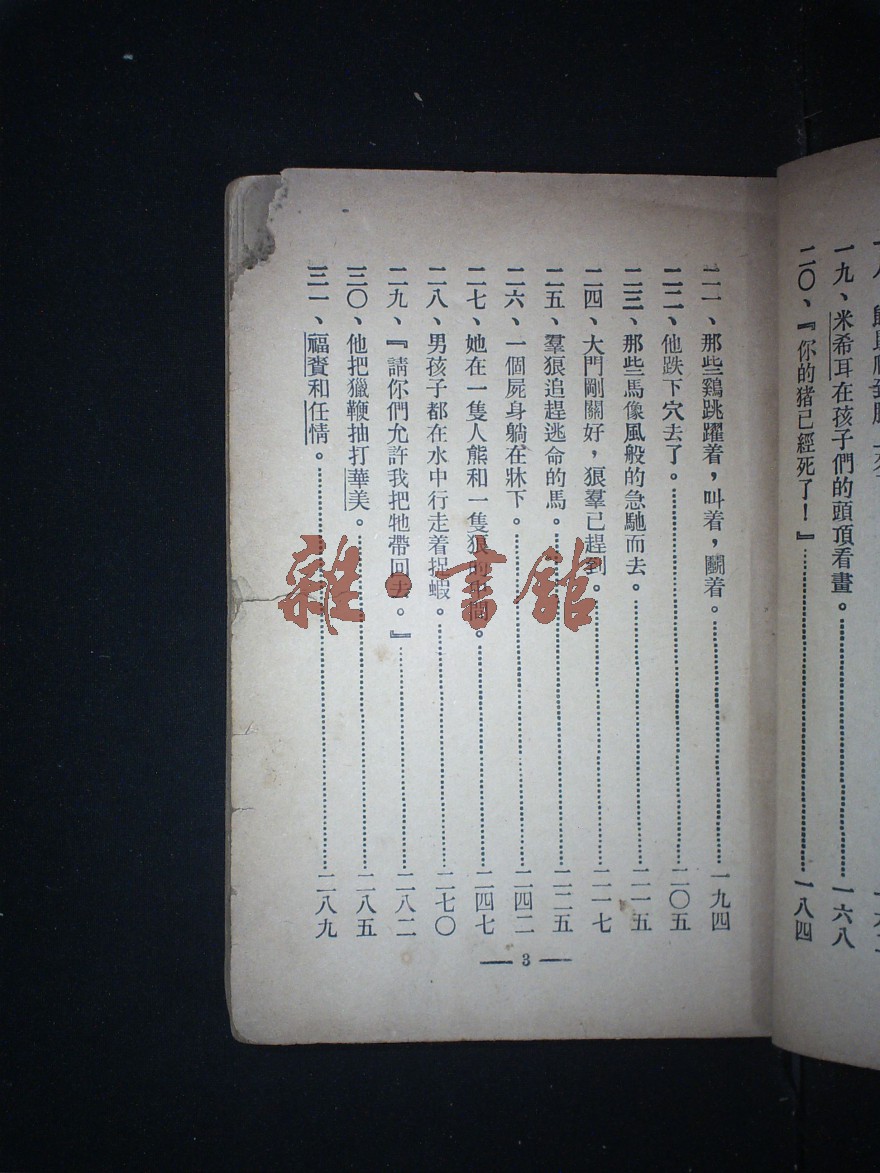 一九、米希耳在孩子們的頭頂看畫。……一六八
二〇、『你的猪已經死了！』……一八四
二一、那些鷄跳躍着，叫着，鬭着。……一九四
二二、他跌下穴去了。……二〇五
二三、那些馬像風般的急馳而去。……二一五
二四、大門剛關好，狼羣已趕到。……二一七
二五、羣狼追趕逃命的馬。……二二五
二六、一個屍身躺在牀下。……二四二
二七、她在一隻人熊和一隻狼的中間。……二四七
二八、男孩子都在水中行走着捉蝦。……二七〇
二九、『請你們允許我把牠帶回去。』……二八二
三〇、他把獵鞭抽打華美。……二八五
三一、福賚和任情。……二八九
— 3 —
雜·書館